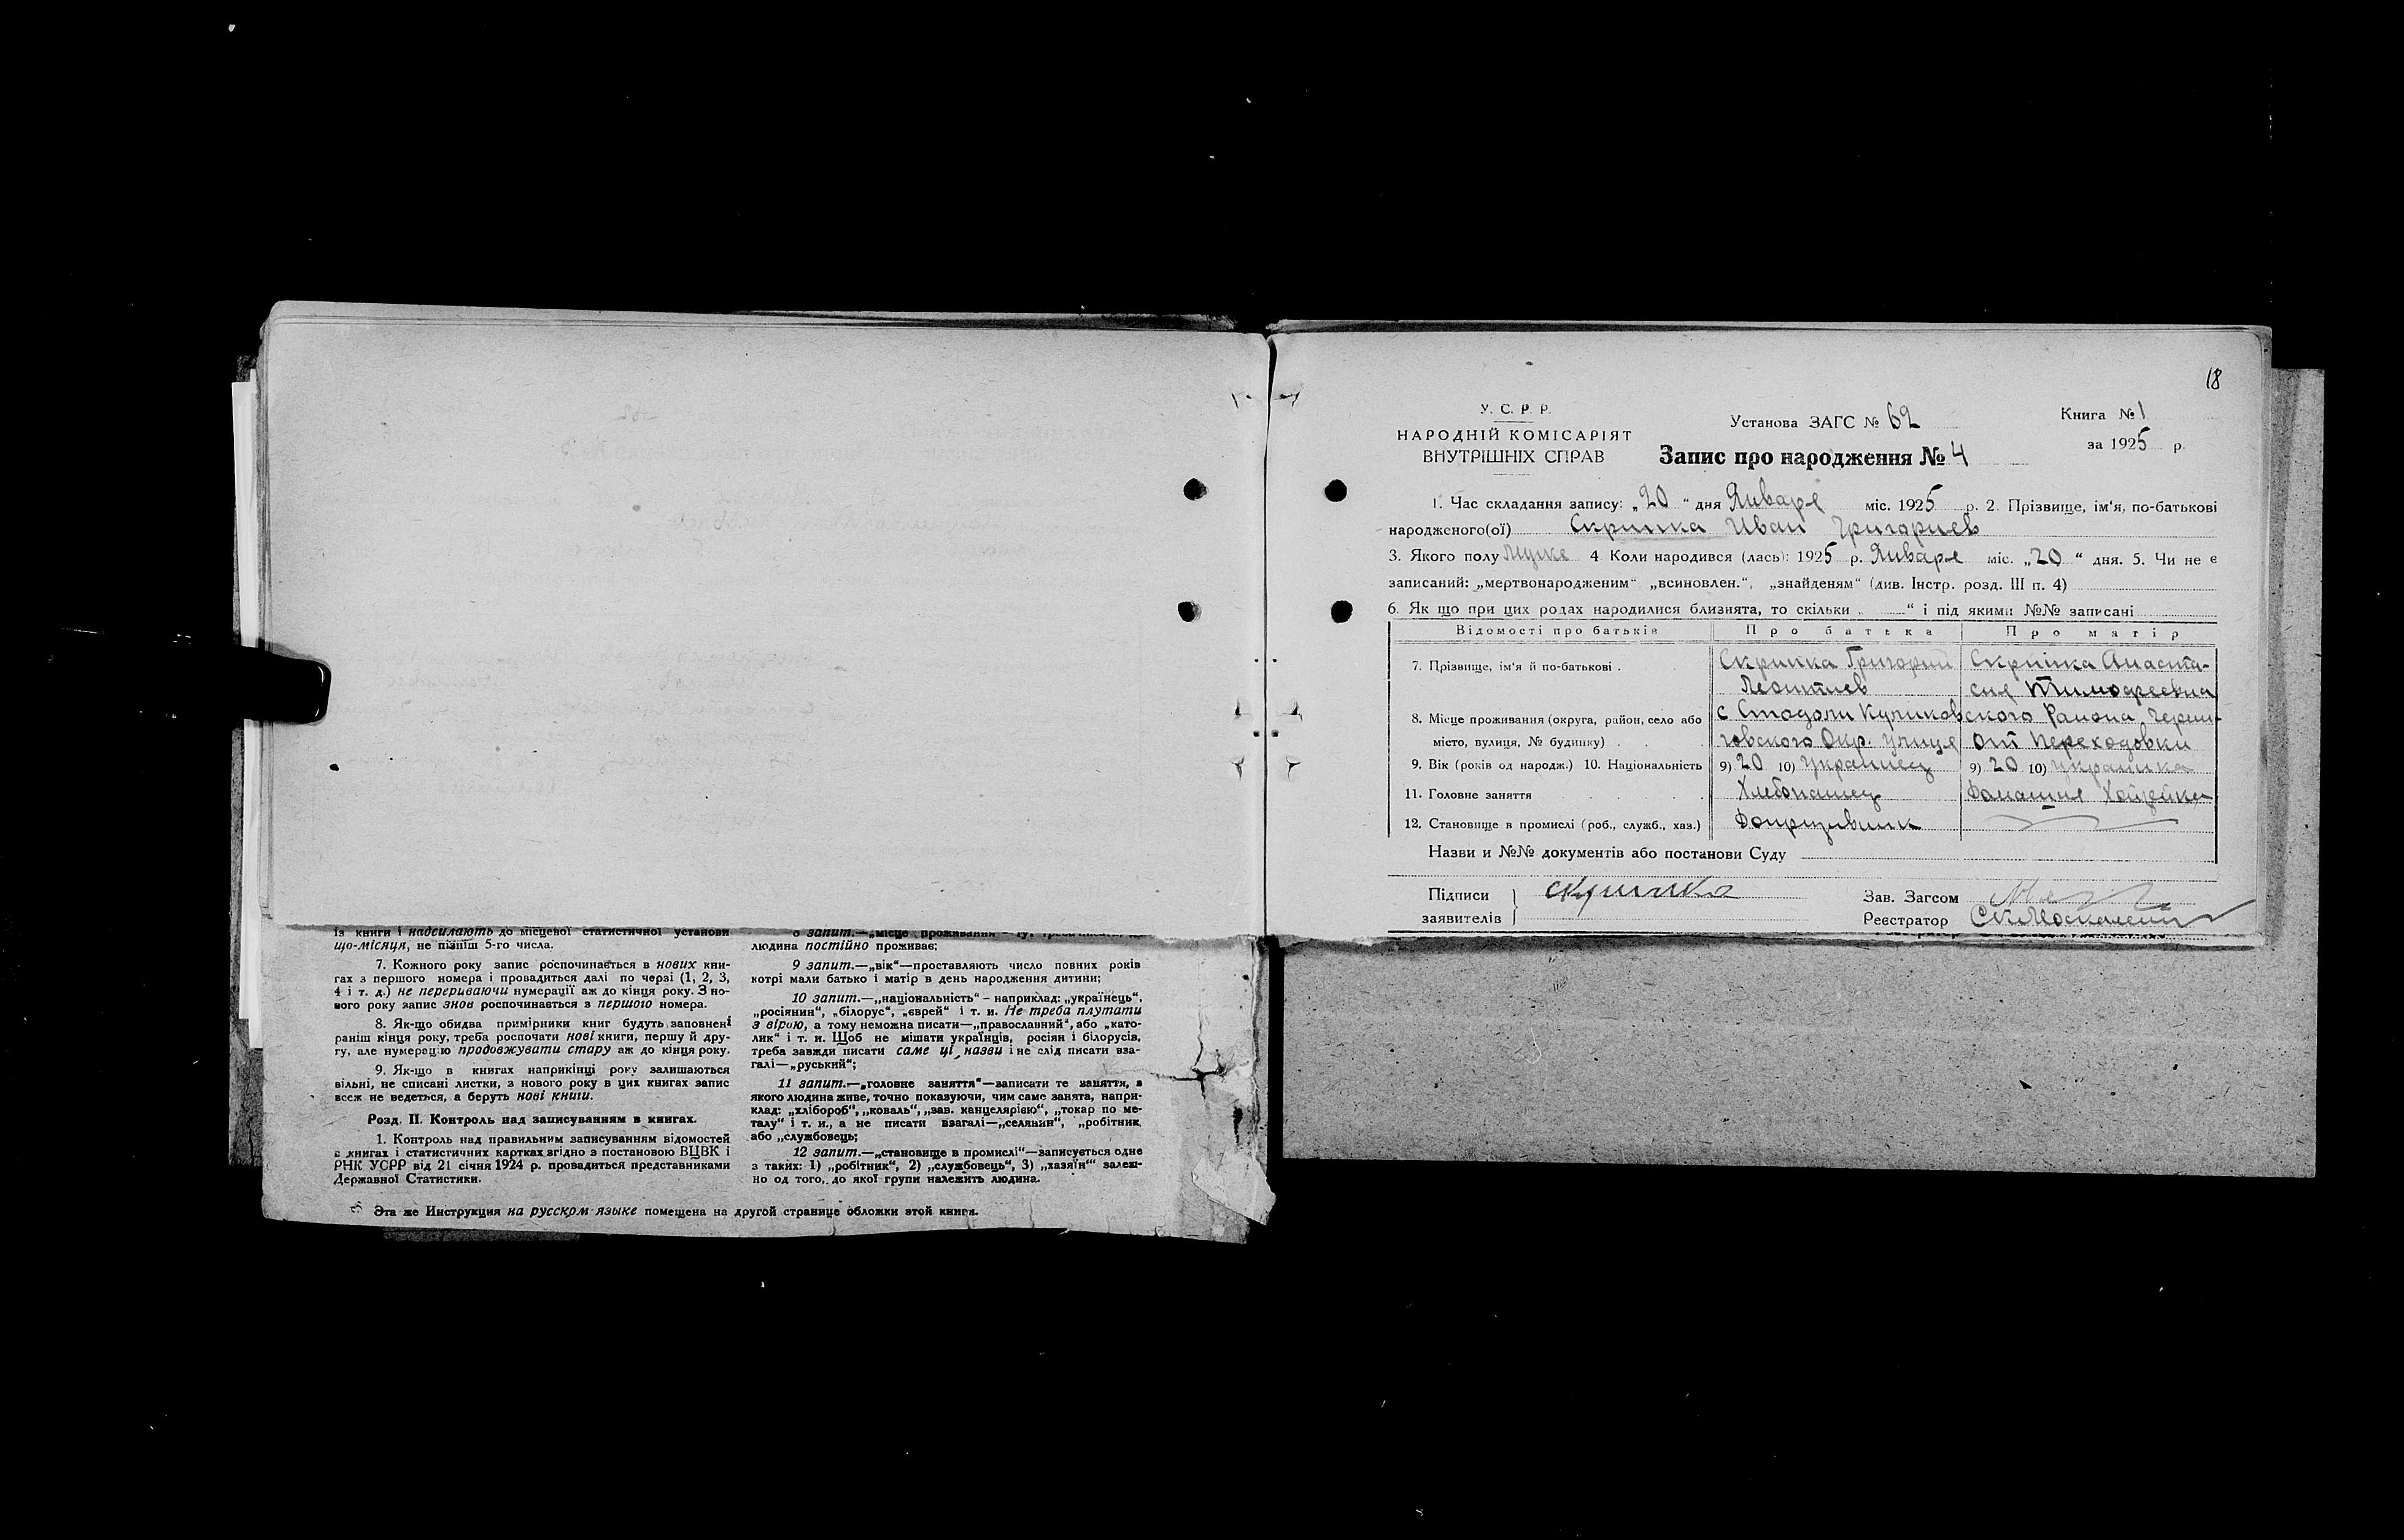 із книги і надсилають до місцевої статистичної установи
що-місяця, не пізніш 5-го числа.
7. Кожного року запис роспочинається в нових кни-
гах з першого номера і провадиться далі по черзі (1, 2, 3,
4 і т. д.) не перериваючи нумерації аж до кінця року. З но-
вого року запис знов роспочинається з першого номера.
8. Як-що обидва примірники книг будуть заповнені
раніш кінця року, треба роспочати нові книги, першу й дру-
гу, але нумерацію продовжувати стару аж до кінця року.
9. Як-що в книгах наприкінці року залишаються
вільні, не списані листки, з нового року в цих книгах запис
всеж не ведеться, а беруть нові книги.
Розд. II. Контроль над записуванням в книгах.
1. Контроль над правильним записуванням відомостей
в книгах і статистичних картках згідно з постановою ВЦВК і
РНК УСРР від 21 січня 1924 р. провадиться представниками
Державної Статистики.
8 запит.—„місце проживання
людина постійно проживає;
9 запит.—„вік“—проставляють число повних років
котрі мали батько і матір в день народження дитини;
10 запит.—„національність“ – наприклад: „українець“,
„росіянин“, „білорус“, „єврей“ і т. и. Не треба плутати
з вірою, а тому неможна писати—„православний“, або „като-
лик“ і т. и. Щоб не мішати українців, росіян і білорусів,
треба завжди писати саме ці назви і не слід писати вза-
галі—„руський“;
11 запит.—„головне заняття“—записати те заняття, з
якого людина живе, точно показуючи, чим саме занята, напри-
клад: „хлібороб“, „коваль“, „зав. канцелярією“, „токар по ме-
талу“ і т. и., а не писати взагалі—„селянин“, „робітник
або „службовець;
12 запит.—„становище в промислі“—записується одне
з таких: 1) „робітник“, 2) „службовець“, 3) „хазяїн“ залеж-
но од того, до якої групи належить людина.
Эта же Инструкция на русском языке помещена на другой странице обложки этой книги.
18
У. С. Р. Р.
НАРОДНІЙ КОМІСАРІЯТ
ВНУТРІШНІХ СПРАВ
Установа ЗАГС № 62
Запис про народження № 4
Книга № 1
за 1925 р.
1. Час складання запису: „20“ дня Января міс. 1925 р. 2. Прізвище, ім‘я, по-батькові
народженого(ої) Скрипка Иван Григориев
3. Якого полу Мужс 4 Коли народився (лась): 1925 р. Января міс. „20“ дня. 5. Чи не є
записаний: „мертвонародженим“ „всиновлен.“, „знайденям“ (див. Інстр. розд. III п. 4)
6. Як що при цих родах народилися близнята, то скільки „ “ і під якими №№ записані
Відомості про батьків Про батька Про матір
7. Прізвище, ім‘я й по-батькові . Скрипка Григорий Скрипка Анаста-
Леонтиев сия Тимофеевна
8. Місце проживання (округа, район, село або с Стодоли Куликовского Района, Черни-
місто, вулиця, № будинку) . . . говского Окр. улица от Переходовки
9. Вік (років од народж.) 10. Національність 9) 20 10) Украинец 9) 20 10) Украинка
11. Головне заняття . . . Хлебопашец Домашня Хозяйка
12. Становище в промислі (роб., служб., хаз.) Допризивник
Назви и №№ документів або постанови Суду
Підписи
заявителів
Скрипка
Зав. Загсом
Реєстратор